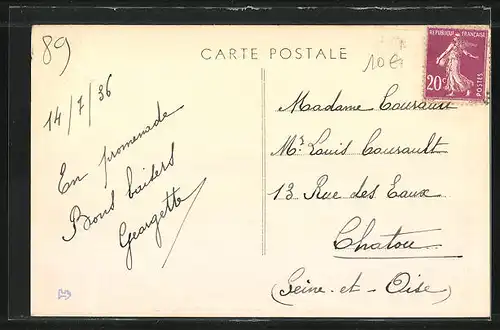 89
CARTE POSTALE
10€
REPUBLIQUE FRANÇAISE
20c
POSTES
14/7/36
En promenade
Bons baisers
Georgette
Madame Coursault
Mr Louis Coursault
13 Rue des Eaux
Chatou
(Seine-et-Oise)